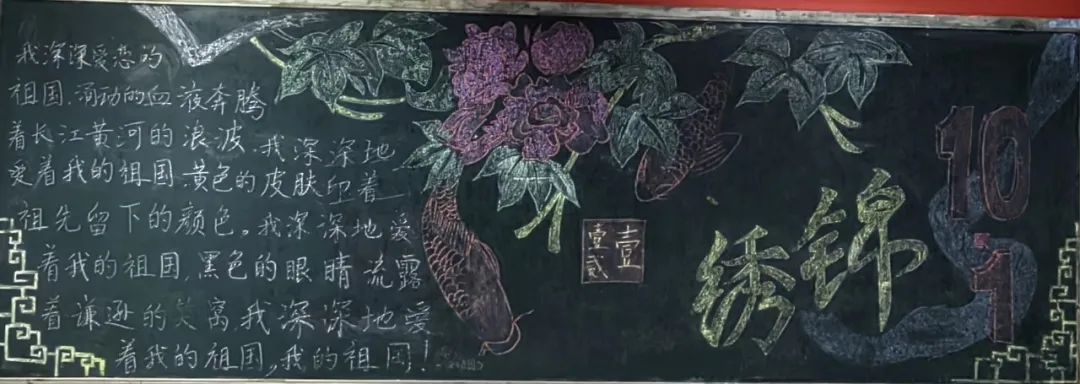 我深深爱恋的
祖国,涌动的血液奔腾
着长江黄河的浪波,我深深地
爱着我的祖国,黄色的皮肤印着
祖先留下的颜色。我深深地爱
着我的祖国,黑色的眼睛流露
着谦逊的笑窝我深深地爱
着我的祖国,我的祖国!
壹 壹
贰
绣锦
10
1